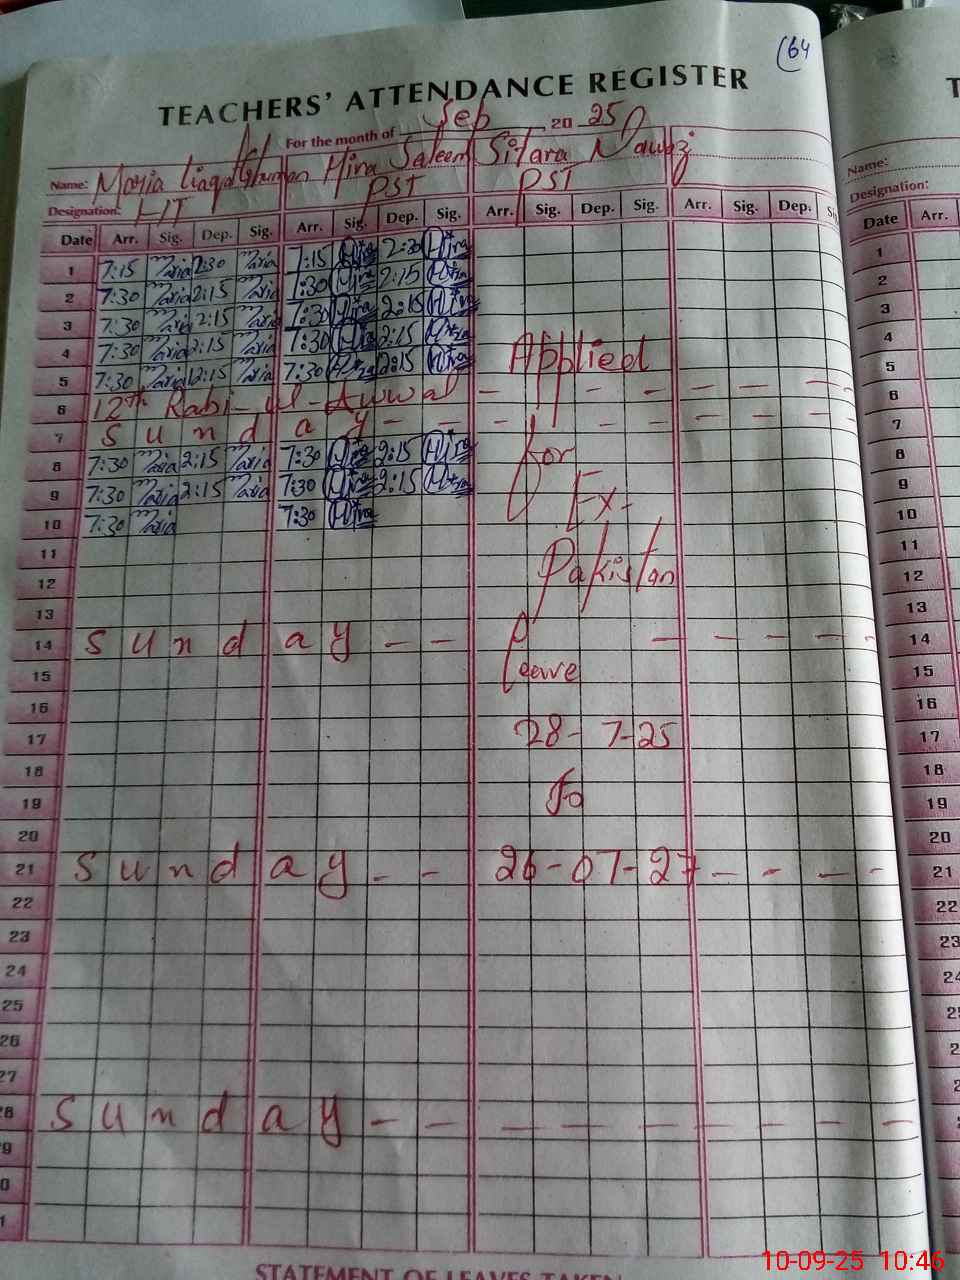 (64
TEACHERS' ATTENDANCE REGISTER
For the month of Sep 2025
Name: Maria Liaqat Hira Saleem Sitara Nawaz
Designation: PST PST
Date Arr. Sig. Dep. Sig. Arr. Sig. Dep. Sig. Arr. Sig. Dep. Sig. Arr. Sig. Dep.
1 7:15 Maria 2:30 Maria 7:15 Hira 2:30 Hira
2 7:30 Maria 2:15 Maria 7:30 Hira 2:15 Hira
3 7:30 Maria 2:15 Maria 7:30 Hira 2:15 Hira
4 7:30 Maria 2:15 Maria 7:30 Hira 2:15 Hira
5 7:30 Maria 2:15 Maria 7:30 Hira 2:15 Hira
6 12th Rabi-ul-Awwal - - - - - - - -
7 Sunday - - - - - - -
8 7:30 Maria 2:15 Maria 7:30 Hira 2:15 Hira
9 7:30 Maria 2:15 Maria 7:30 Hira 2:15 Hira
10 7:30 Maria 7:30 Hira
11
12
13
14 Sunday - - - - - - -
15
16
17
18
19
20
21 Sunday - - - - - -
22
23
24
25
26
27
28 Sunday - - - - - - - - - -
9
0
1
Applied
for
Ex-
Pakistan
leave
28-7-25
To
26-07-27
STATEMENT OF LEAVES TAKEN
T
Name:
Designation:
Date Arr.
1
2
3
4
5
6
7
8
9
10
11
12
13
14
15
16
17
18
19
20
21
22
23
24
10-09-25 10:46